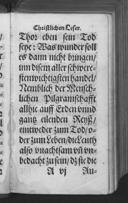 Christlichen Leser.
Thor eben sein Tod
seye: Was wunder soll
es dann nicht bringen/
inn disem aller schwere-
stenwichtigsten handel/
Nemblich der Mensch-
lichen Pilgramschafft
allhie auff Erden vnnd
gantz elenden Reyß/
eintweder zum Tod/o-
der zum Leben/ die Leuth
also vnachtsam vñ vn-
bedacht zu sein/ dz sie die
A vj An-